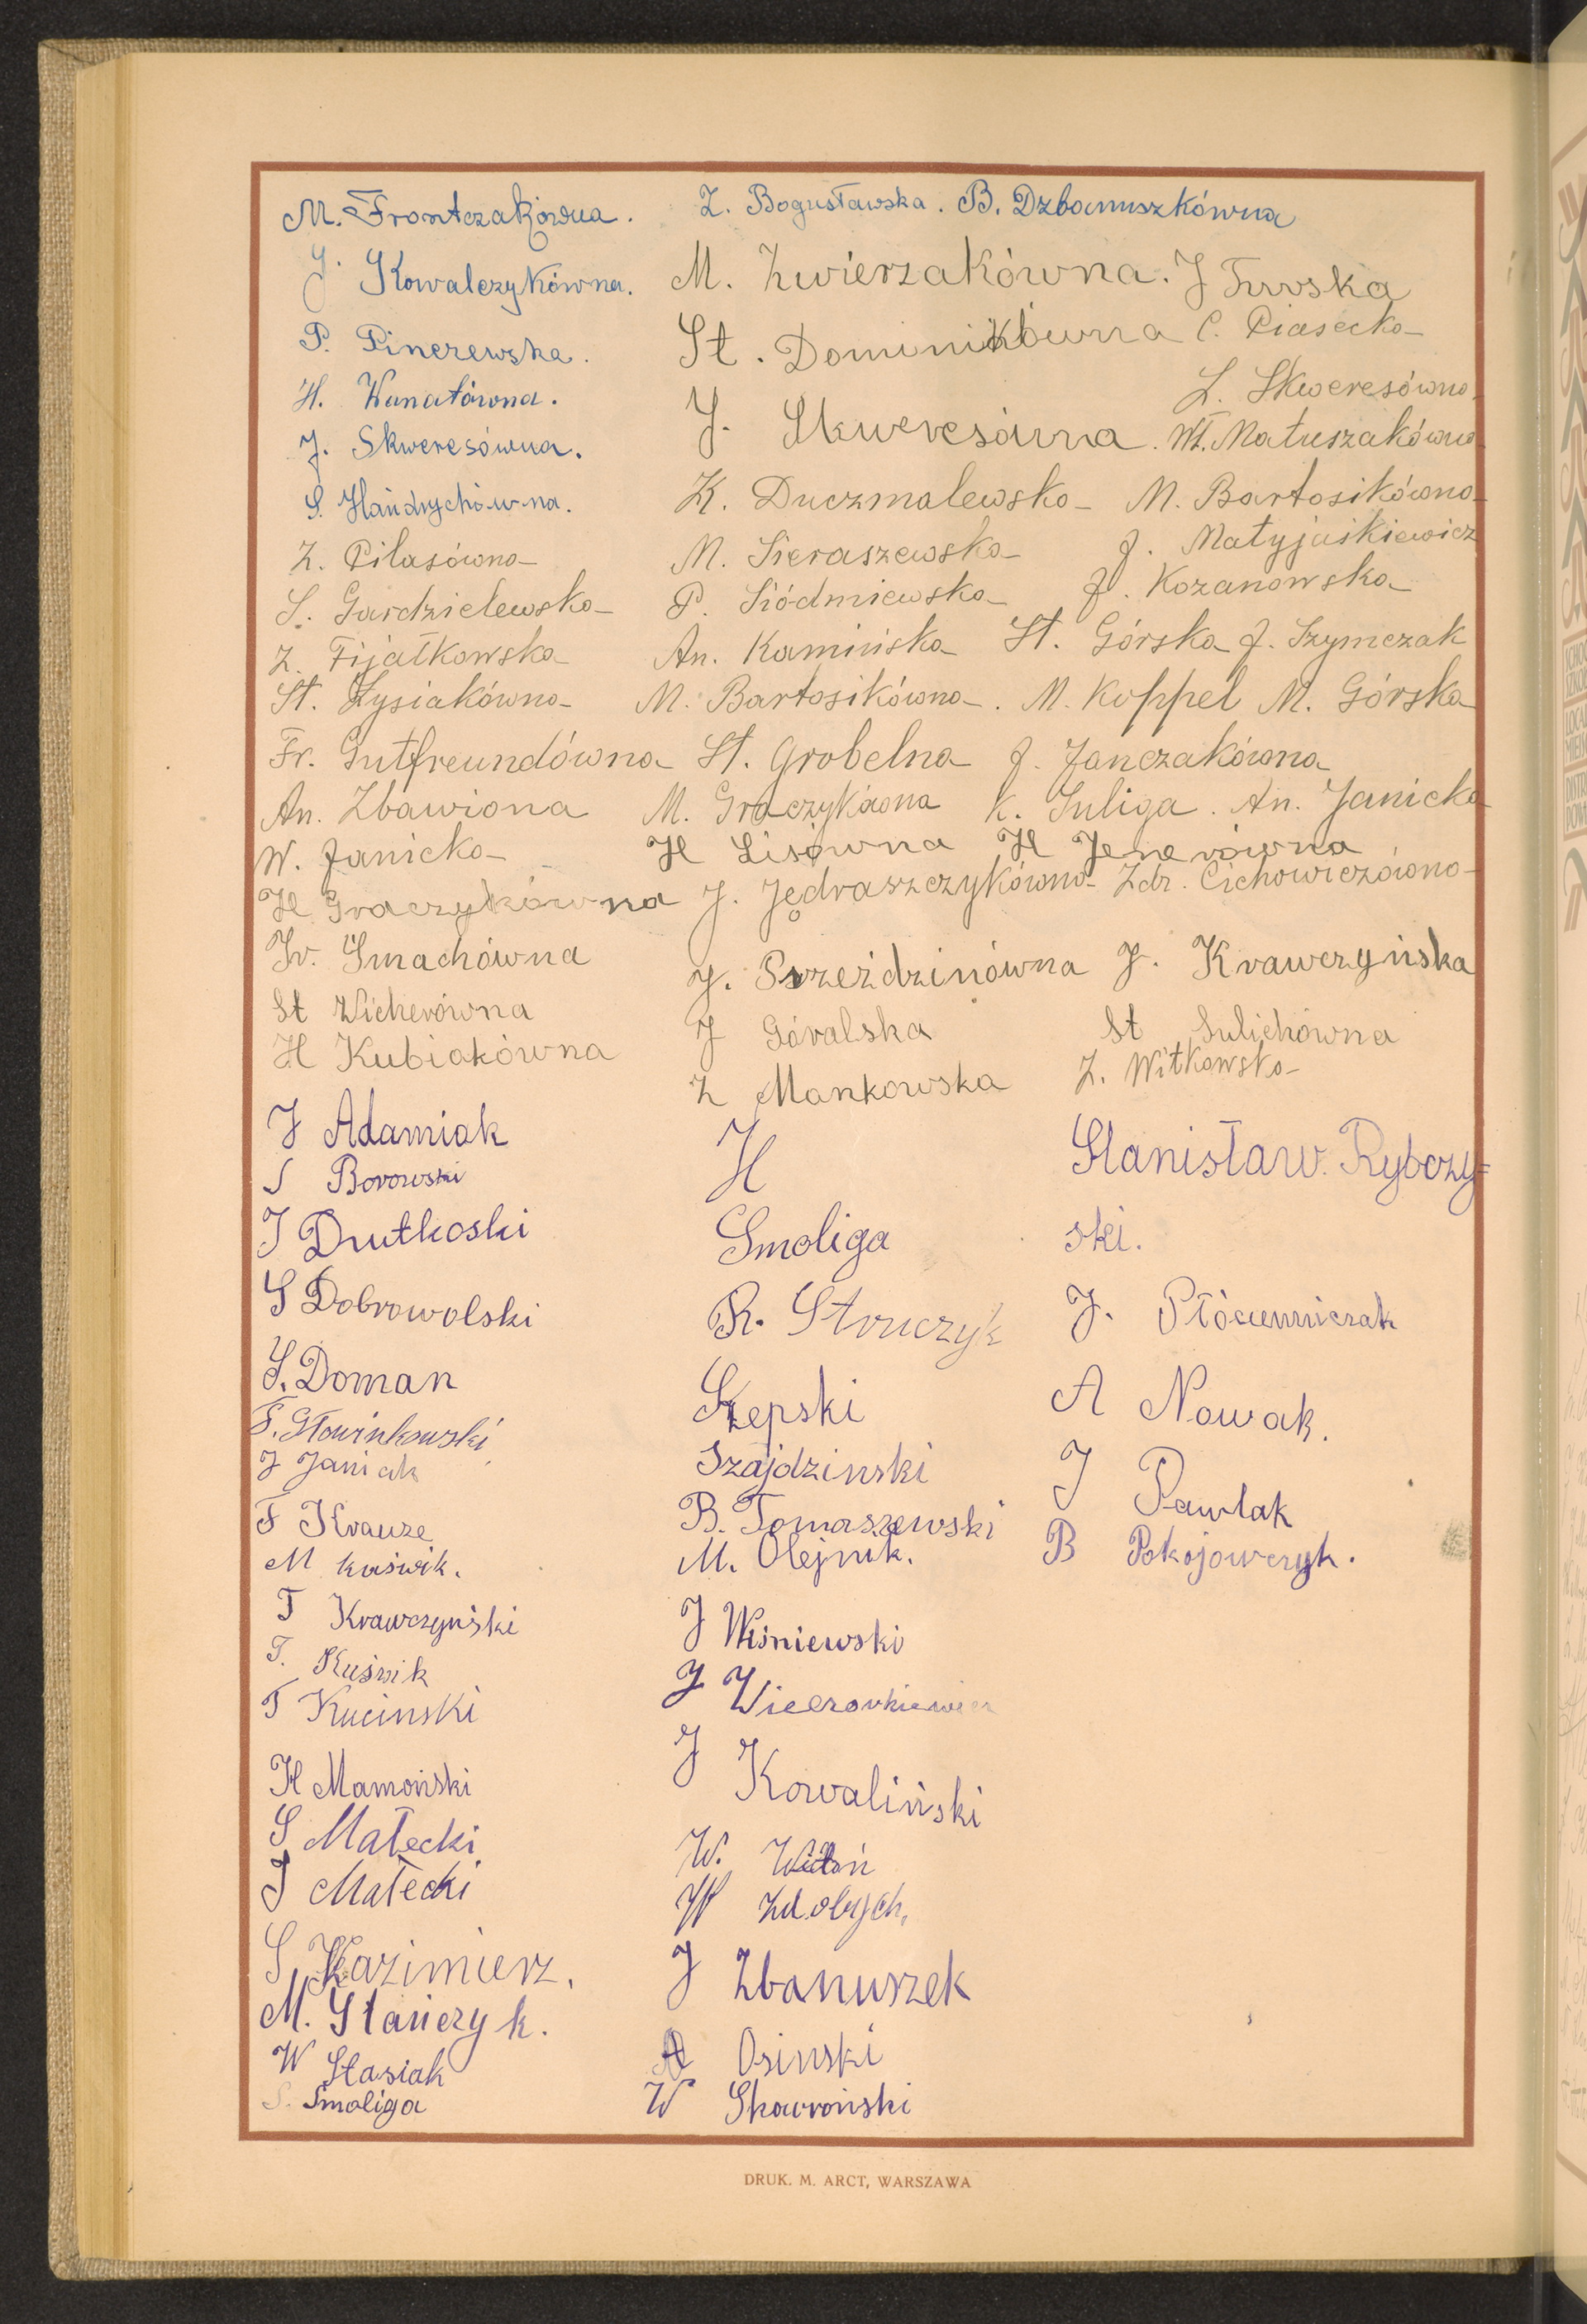 M. Frontczakówna. Z. Bogusławska. B. Dzbanuszkówna
J. Kowalczykówna. M. Zwierzakówna. J Turska
P. Pinczewska. St. Dominikówna C. Piasecka
H. Kunatówna. L. Skweresówna.
J. Skweresówna. J. Skweresówna. Wł. Matuszakówna
S. Handrychówna. K. Duczmalewska M. Bartosikówna
Z. Pilasówna M. Sieraszewska J. Matyjaśkiewicz
S. Gardzielewska P. Siódmiewska J. Kozanowska
Z. Fijałkowska An. Kamińska St. Górska J. Szymczak
St. Łysiakówna M. Bartosikówna. M. Koppel M. Górska
Fr. Gutfreundówna St. Grobelna J. Janczakówna
An. Zbawiona M. Graczykówna K. Suliga. An. Janicka
W. Janicka H Lisówna H Jenerówna
H Graczykówna J. Jędraszczykówna Zdz. Cichowiczówna
Ir. Gmachówna J. Przeździnówna J. Krawczyńska
St Wicherówna J Góralska St Sulichówna
H Kubiakówna Z Mankowska Z. Witkowska
J Adamiak H Stanisław. Rybczy=
S Borowski
J Drutkoski Smoliga ski.
S Dobrowolski R. Struczyk J. Płócienniczak
S. Doman Szepski A Nowak.
F. Głowinkowski
J Janiak Szajdzinski J Pawlak
F Krauze B. Tomaszewski
M kuświk. M. Olejnik. B Pokojowczyk.
T Krawczyński J Wiśniewski
T. Kuświk J Wieczorkiewicz
T Kucinski J Kowaliński
H Mamoński
S Małecki W. Witoń
J Małecki W Zdobych,
S Kazimierz. J Zbanuszek
M. Stańczyk.
W Stasiak A Osinski
S. Smoliga W Skowroński
DRUK. M. ARCT, WARSZAWA